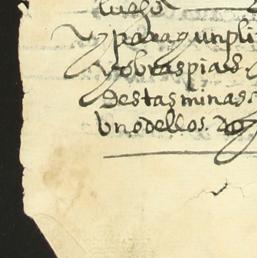 luego
y para cunpli
y obras pias
destas minas
vno dellos.